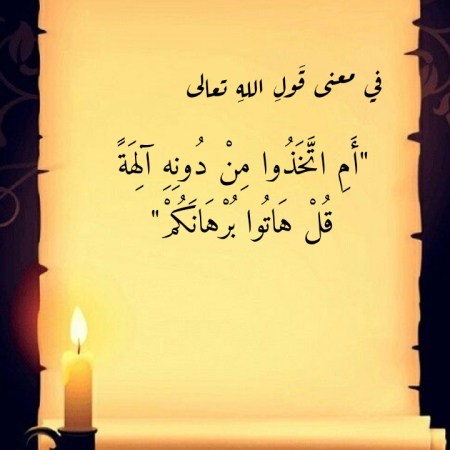 في معنى قَولِ اللهِ تعالى
"أَمِ اتَّخَذُوا مِنْ دُونِهِ آلِهَةً
قُلْ هَاتُوا بُرْهَانَكُمْ"